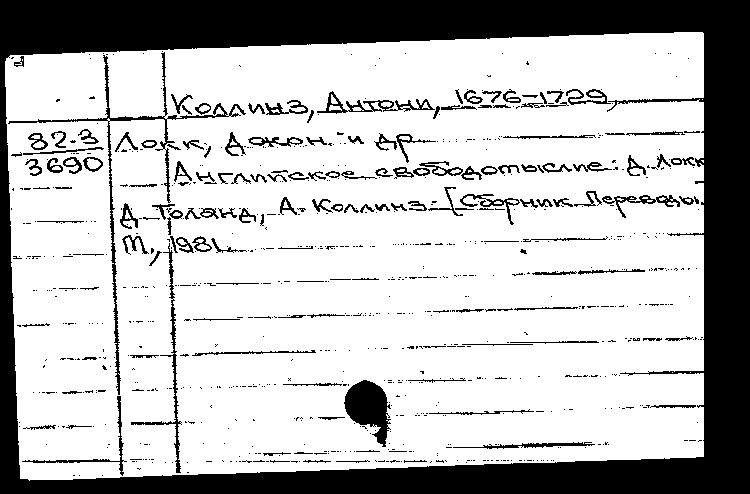 Коллинз, Антони, 1676-1729,
82-3 Локк, Джон. и др.
3690 Английское свободомыслие: Д. Локк
Д. Толанд, А. Коллинз. [Сборник Переводы.
М., 1981.